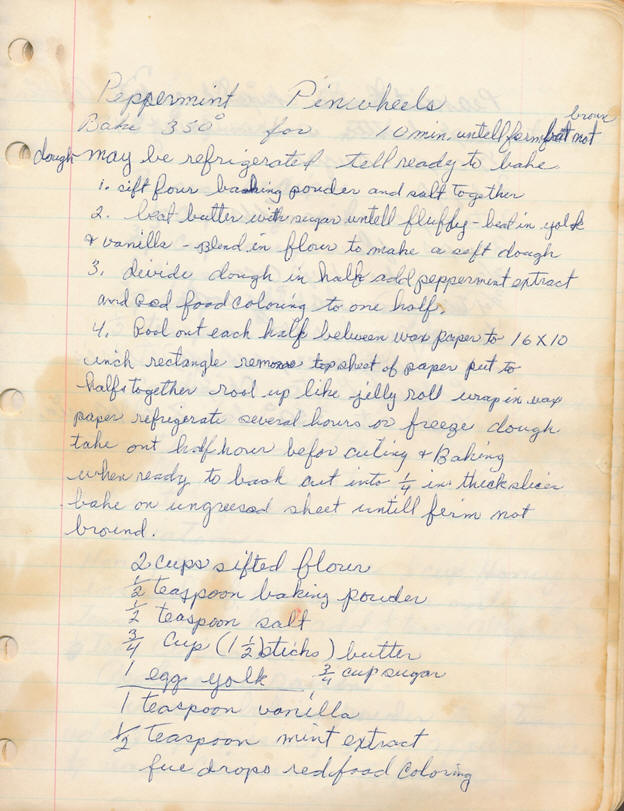 Peppermint Pinwheels
Bake 350° for 10 min. untell ferm but not brown
dough may be refrigerated tell ready to bake
1. sift flour baking powder and salt together
2. beat butter with sugar untell fluffy - beat in yolk
& vanilla - Blend in flour to make a soft dough
3. devide dough in half add peppermint extract
and red food coloring to one half.
4. Rool out each half between wax paper to 16 X 10
inch rectangle remove top sheet of paper put to
halfs together rool up like jelly roll wrap in wax
paper refrigerate several hours or freeze dough
take out half hour befor cuting & Baking
when ready to back cut into 1/4 in. thick slices
bake on ungreesed sheet untill ferm not
bround.
2 cups sifted flour
1/2 teaspoon baking powder
1/2 teaspoon salt
3/4 cup (1 1/2 sticks) butter
1 egg yolk 3/4 cup sugar
1 teaspoon vanilla
1/2 teaspoon mint extract
fue drops red food coloring